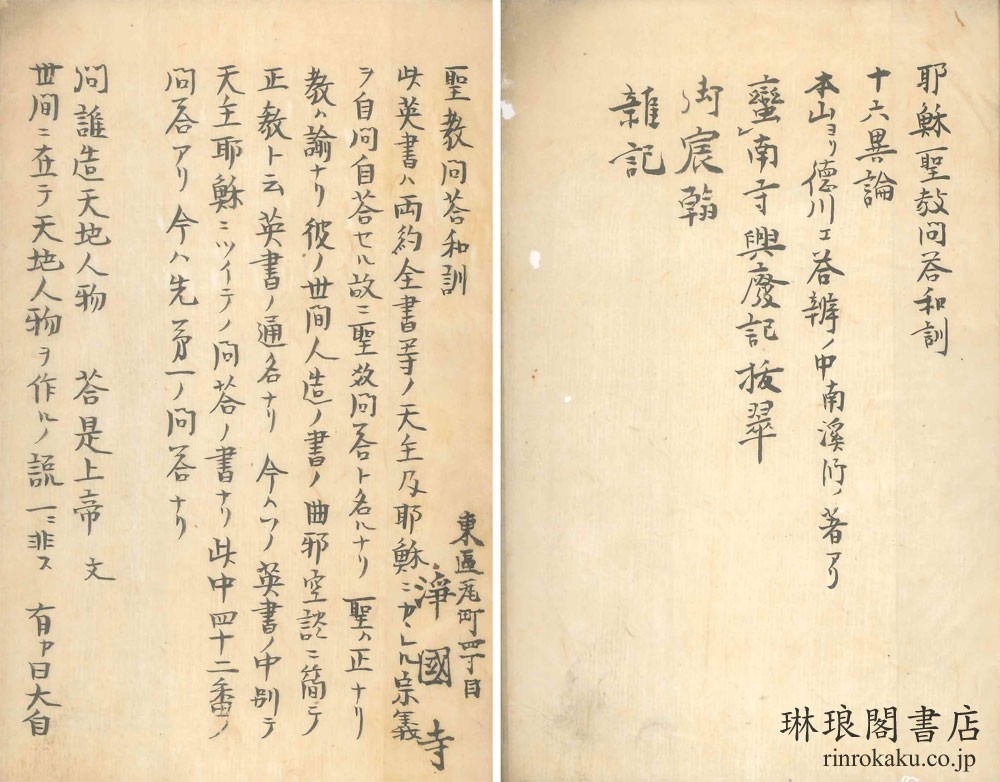 耶穌聖教問答和訓
十六異論
本山ヨリ德川エ答辨ノ中南溪師ノ著アリ
蠻南寺興廢記拔翠
御宸翰
雜記
琳琅閣書店
rinrokaku.co.jp
聖教問答和訓
東區瓦町四丁目
淨國寺
此英書ハ両約全書等ノ天主及耶穌ニカヽレル宗義
ヲ自問自答セル故ニ聖教問答ト名ルナリ 聖ハ正ナリ
教ハ諭ナリ彼ノ世間人造ノ書ノ曲邪空談ニ簡テ
正教ト云英書ノ通名ナリ 今ハソノ英書ノ中別テ
天主耶穌ニツイテノ問答ノ書ナリ此中四十二番ノ
問答アリ今ハ先第一ノ問答ナリ
問誰造天地人物 答是上帝 文
世间ニ在テ天地人物ヲ作ルノ説一ニ非ス 有ハ曰大自